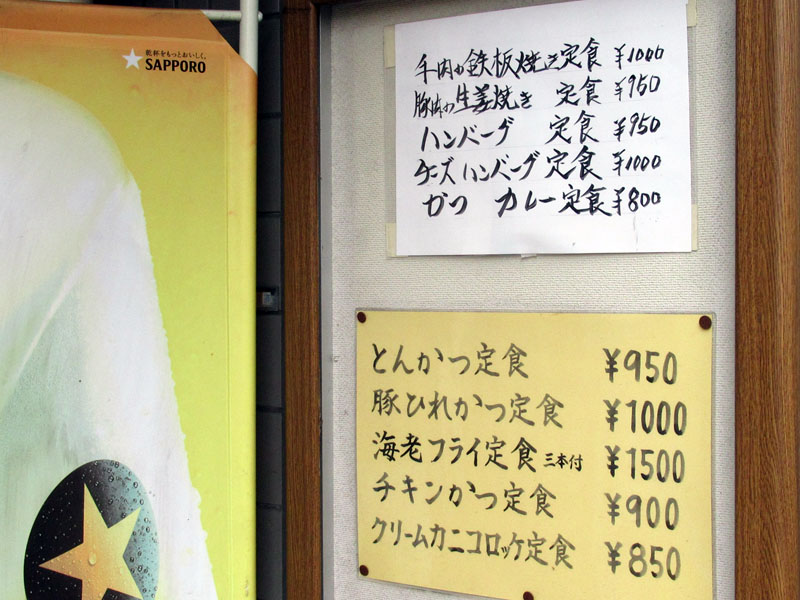 乾杯をもっとおいしく。
SAPPORO
牛肉の鉄板焼き定食 ¥1000
豚肉の生姜焼き 定食 ¥950
ハンバーグ 定食 ¥950
チーズハンバーグ定食 ¥1000
かつ カレー定食 ¥800
とんかつ定食 ¥950
豚ひれかつ定食 ¥1000
海老フライ定食 三本付 ¥1500
チキンかつ定食 ¥900
クリームカニコロッケ定食 ¥850